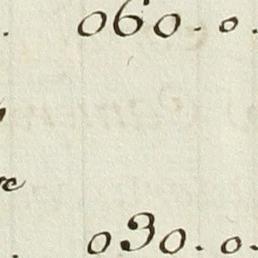 060. 0.
re
030. 0.